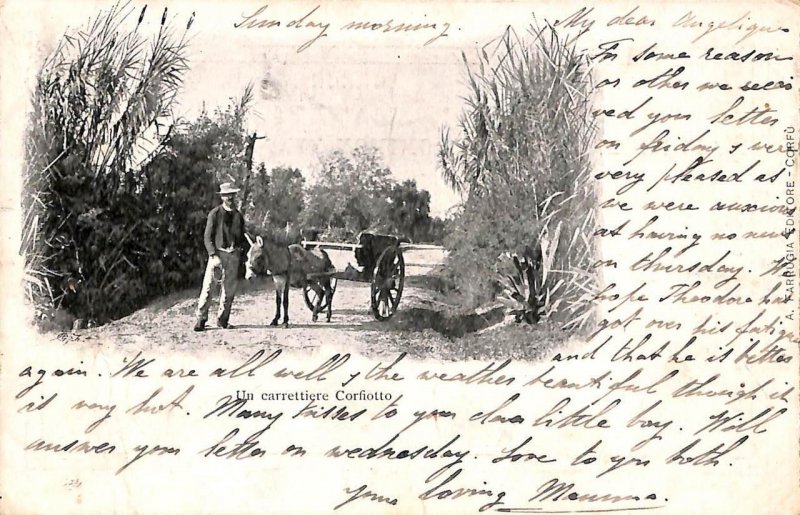 Sunday morning
My dear Angelique
For some reason
or other we recei
ved your letter
on friday & were
very pleased as
we were anxious
at having no news
on thursday. We
hope Theodore has
got over his fatigue
and that he is better
again. We are all well & the weather beautiful though it
is very hot. Many kisses to your dear little boy. Will
answer your letter on wednesday. Love to you both.
Your loving Mamma.
Un carrettiere Corfiotto
A. FARRUGIA EDITORE - CORFÙ